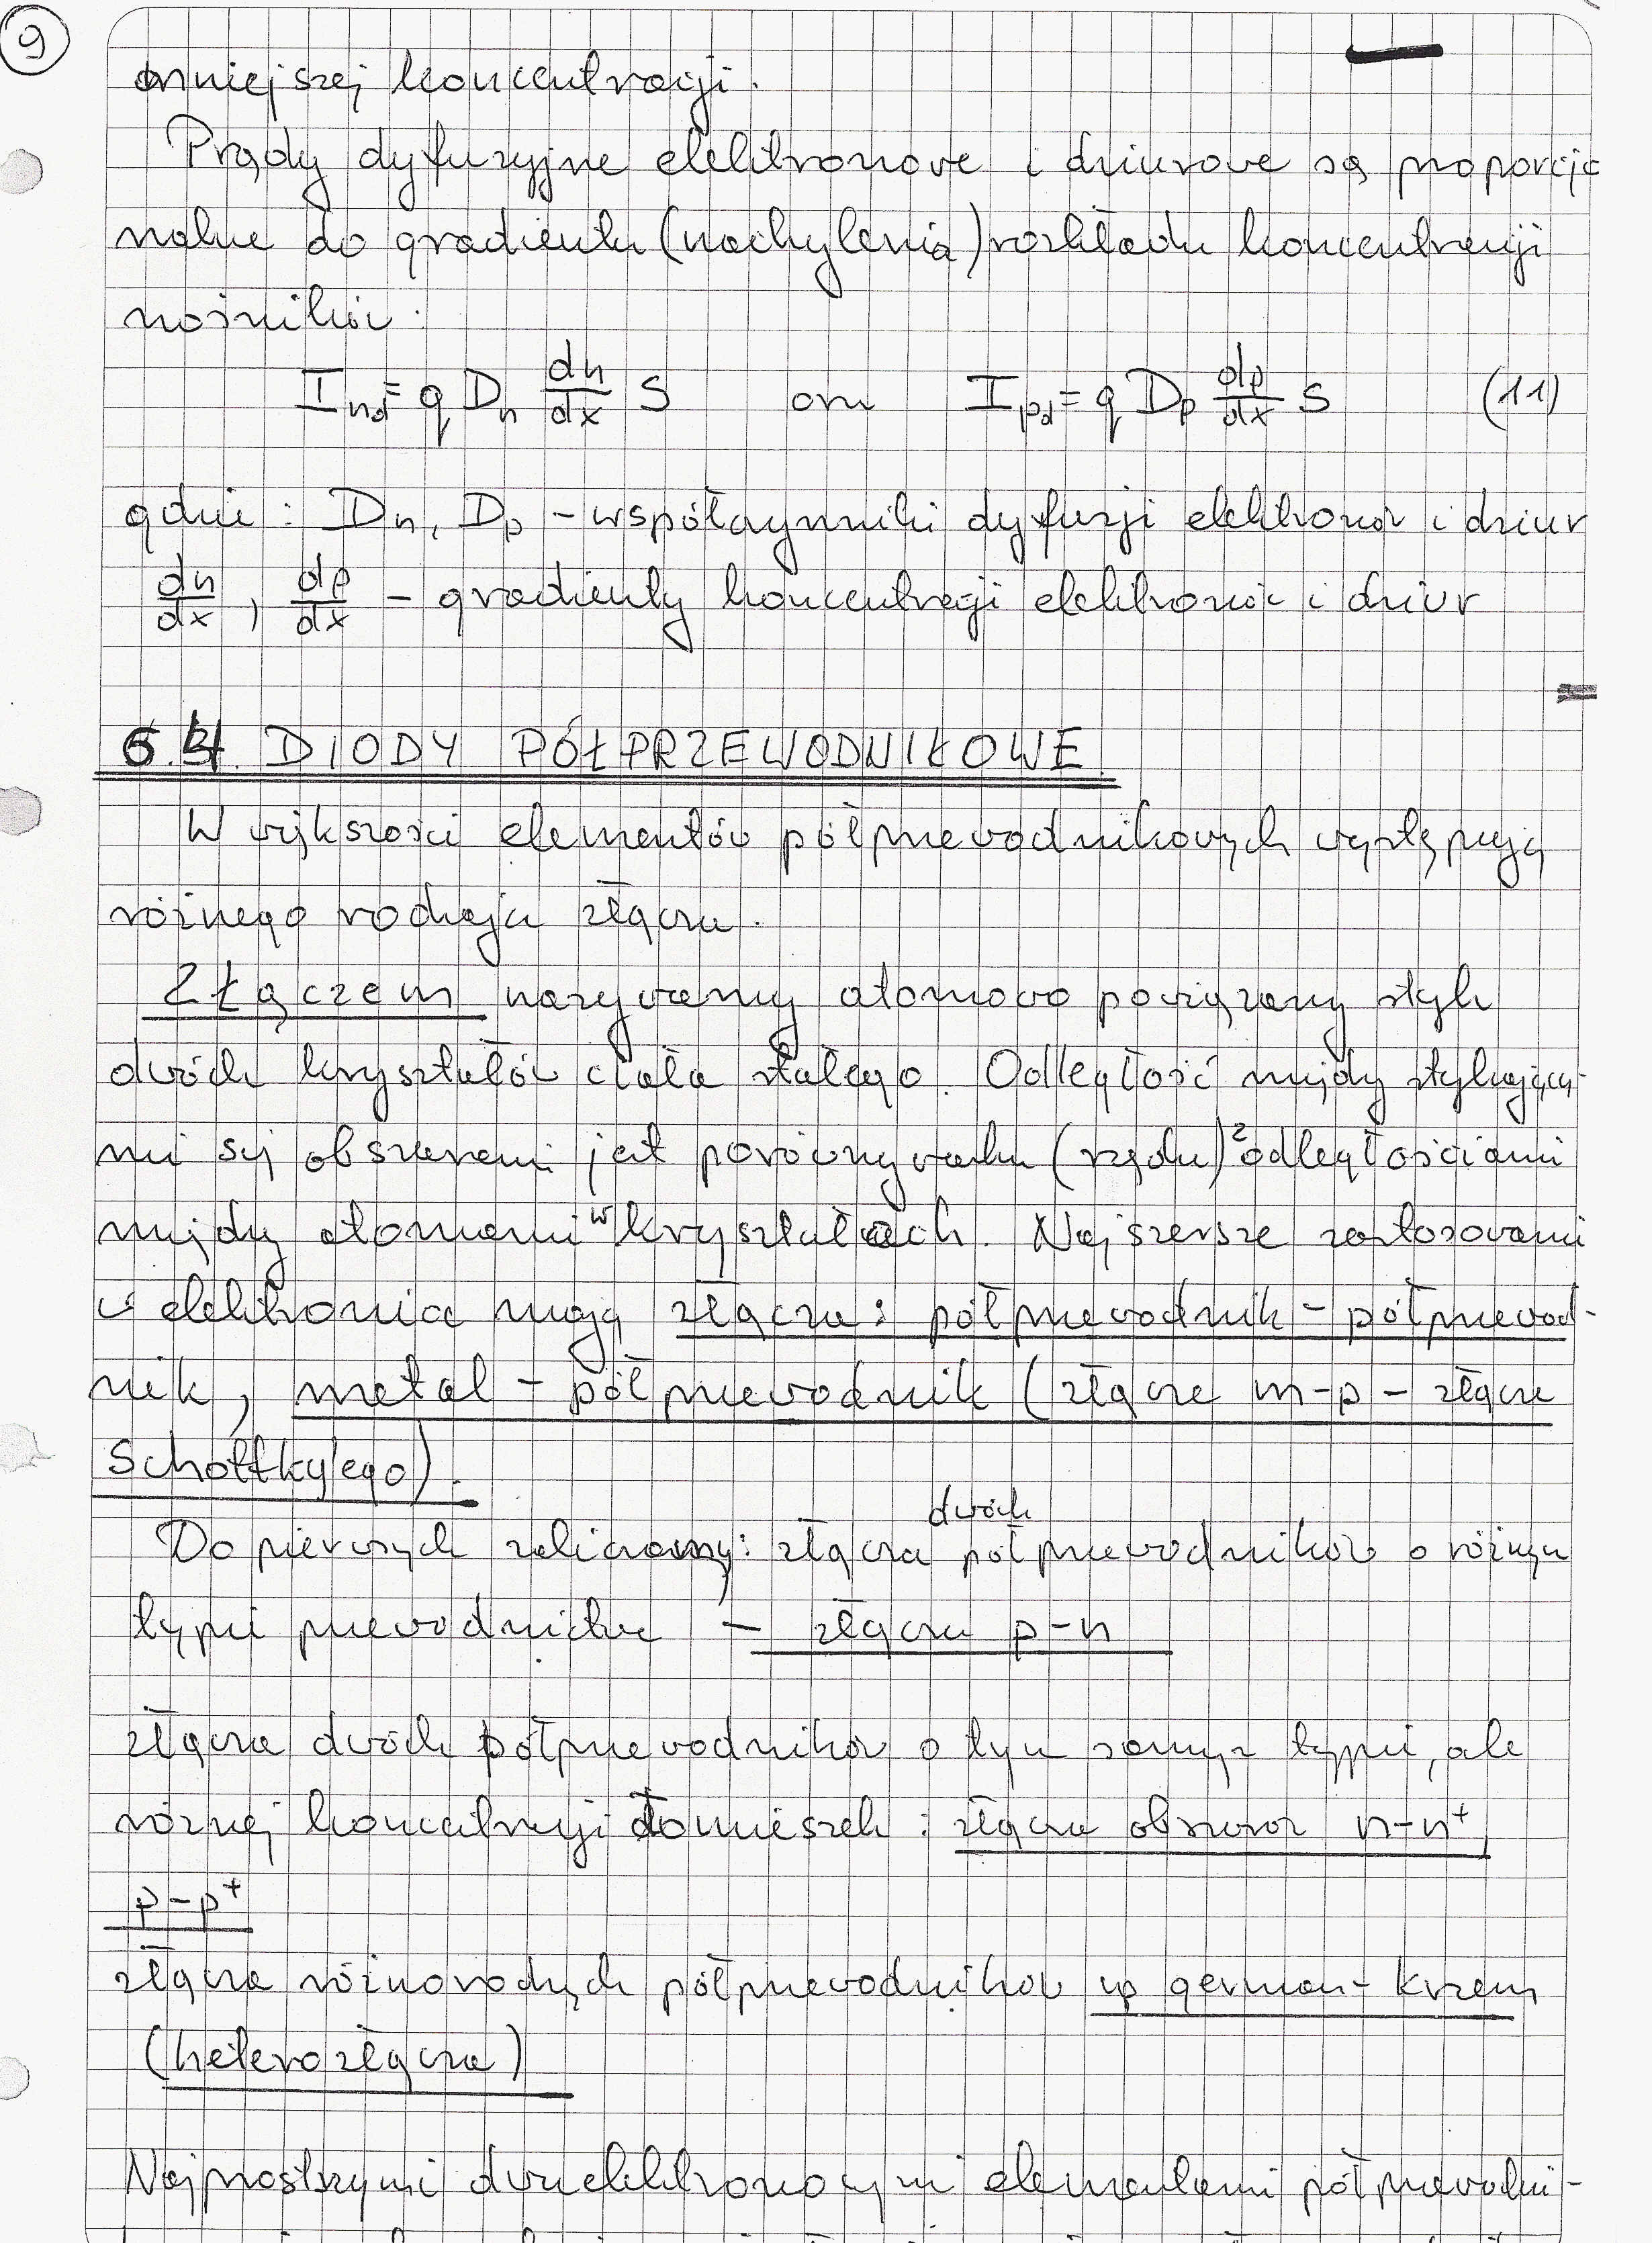 9
mniejszej koncentracji.
Prądy dyfuzyjne elektronowe i dziurowe są proporcjo
nalne do gradientu (nachylenia) rozkładu koncentracji
nośników.
I_nd = q D_n dn/dx S oraz I_pd = q D_p dp/dx S (11)
gdzie: D_n, D_p - współczynniki dyfuzji elektronów i dziur
dn/dx, dp/dx - gradienty koncentracji elektronów i dziur
DIODY PÓŁPRZEWODNIKOWE
W większości elementów półprzewodnikowych występują
różnego rodzaju złącza.
Złączem nazywamy atomowo powiązany styk
dwóch kryształów ciała stałego. Odległość między stykający-
mi się obszarami jest porównywalna (rzędu) z odległościami
między atomami w kryształach. Najszersze zastosowanie
w elektronice mają złącza: półprzewodnik - półprzewod-
nik, metal - półprzewodnik (złącze m-p - złącze
Schottky'ego).
Do pierwszych zaliczamy: złącza dwóch półprzewodników o różnym
typie przewodnictwa - złącza p-n
złącza dwóch półprzewodników o tym samym typie, ale
różnej koncentracji domieszek: złącza obszarów n-n⁺,
p-p⁺
złącza różnorodnych półprzewodników np german - krzem
(heterozłącza)
Najprostszymi dwuelektrodowymi elementami półprzewodni-